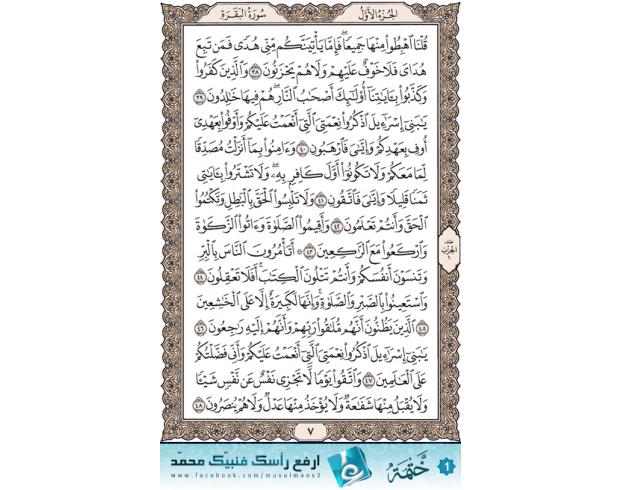 الجزء الأول
سورة البقرة
قُلْنَا ٱهْبِطُوا۟ مِنْهَا جَمِيعًا ۖ فَإِمَّا يَأْتِيَنَّكُم مِّنِّى هُدًى فَمَن تَبِعَ
هُدَاىَ فَلَا خَوْفٌ عَلَيْهِمْ وَلَا هُمْ يَحْزَنُونَ ٣٨ وَٱلَّذِينَ كَفَرُوا۟
وَكَذَّبُوا۟ بِـَٔايَـٰتِنَآ أُو۟لَـٰٓئِكَ أَصْحَـٰبُ ٱلنَّارِ ۖ هُمْ فِيهَا خَـٰلِدُونَ ٣٩
يَـٰبَنِىٓ إِسْرَٰٓءِيلَ ٱذْكُرُوا۟ نِعْمَتِىَ ٱلَّتِىٓ أَنْعَمْتُ عَلَيْكُمْ وَأَوْفُوا۟ بِعَهْدِىٓ
أُوفِ بِعَهْدِكُمْ وَإِيَّـٰىَ فَٱرْهَبُونِ ٤٠ وَءَامِنُوا۟ بِمَآ أَنزَلْتُ مُصَدِّقًا
لِّمَا مَعَكُمْ وَلَا تَكُونُوٓا۟ أَوَّلَ كَافِرٍۭ بِهِۦ ۖ وَلَا تَشْتَرُوا۟ بِـَٔايَـٰتِى
ثَمَنًا قَلِيلًا وَإِيَّـٰىَ فَٱتَّقُونِ ٤١ وَلَا تَلْبِسُوا۟ ٱلْحَقَّ بِٱلْبَـٰطِلِ وَتَكْتُمُوا۟
ٱلْحَقَّ وَأَنتُمْ تَعْلَمُونَ ٤٢ وَأَقِيمُوا۟ ٱلصَّلَوٰةَ وَءَاتُوا۟ ٱلزَّكَوٰةَ
وَٱرْكَعُوا۟ مَعَ ٱلرَّٰكِعِينَ ٤٣ ۞ أَتَأْمُرُونَ ٱلنَّاسَ بِٱلْبِرِّ
وَتَنسَوْنَ أَنفُسَكُمْ وَأَنتُمْ تَتْلُونَ ٱلْكِتَـٰبَ ۚ أَفَلَا تَعْقِلُونَ ٤٤
وَٱسْتَعِينُوا۟ بِٱلصَّبْرِ وَٱلصَّلَوٰةِ ۚ وَإِنَّهَا لَكَبِيرَةٌ إِلَّا عَلَى ٱلْخَـٰشِعِينَ
٤٥ ٱلَّذِينَ يَظُنُّونَ أَنَّهُم مُّلَـٰقُوا۟ رَبِّهِمْ وَأَنَّهُمْ إِلَيْهِ رَٰجِعُونَ ٤٦
يَـٰبَنِىٓ إِسْرَٰٓءِيلَ ٱذْكُرُوا۟ نِعْمَتِىَ ٱلَّتِىٓ أَنْعَمْتُ عَلَيْكُمْ وَأَنِّى فَضَّلْتُكُمْ
عَلَى ٱلْعَـٰلَمِينَ ٤٧ وَٱتَّقُوا۟ يَوْمًا لَّا تَجْزِى نَفْسٌ عَن نَّفْسٍ شَيْـًٔا
وَلَا يُقْبَلُ مِنْهَا شَفَـٰعَةٌ وَلَا يُؤْخَذُ مِنْهَا عَدْلٌ وَلَا هُمْ يُنصَرُونَ ٤٨
نصف
الحزب
١
٧
١
ختمة
ارفع رأسك فنبيّك محمّد
www.facebook.com/musulmans2